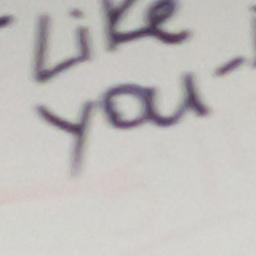 - Like
you -